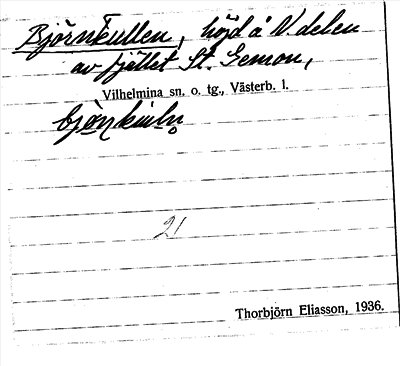 Björnkullen, höjd å V. delen
av fjället St. Gemon,
Vilhelmina sn. o. tg., Västerb. l.
21
Thorbjörn Eliasson, 1936.